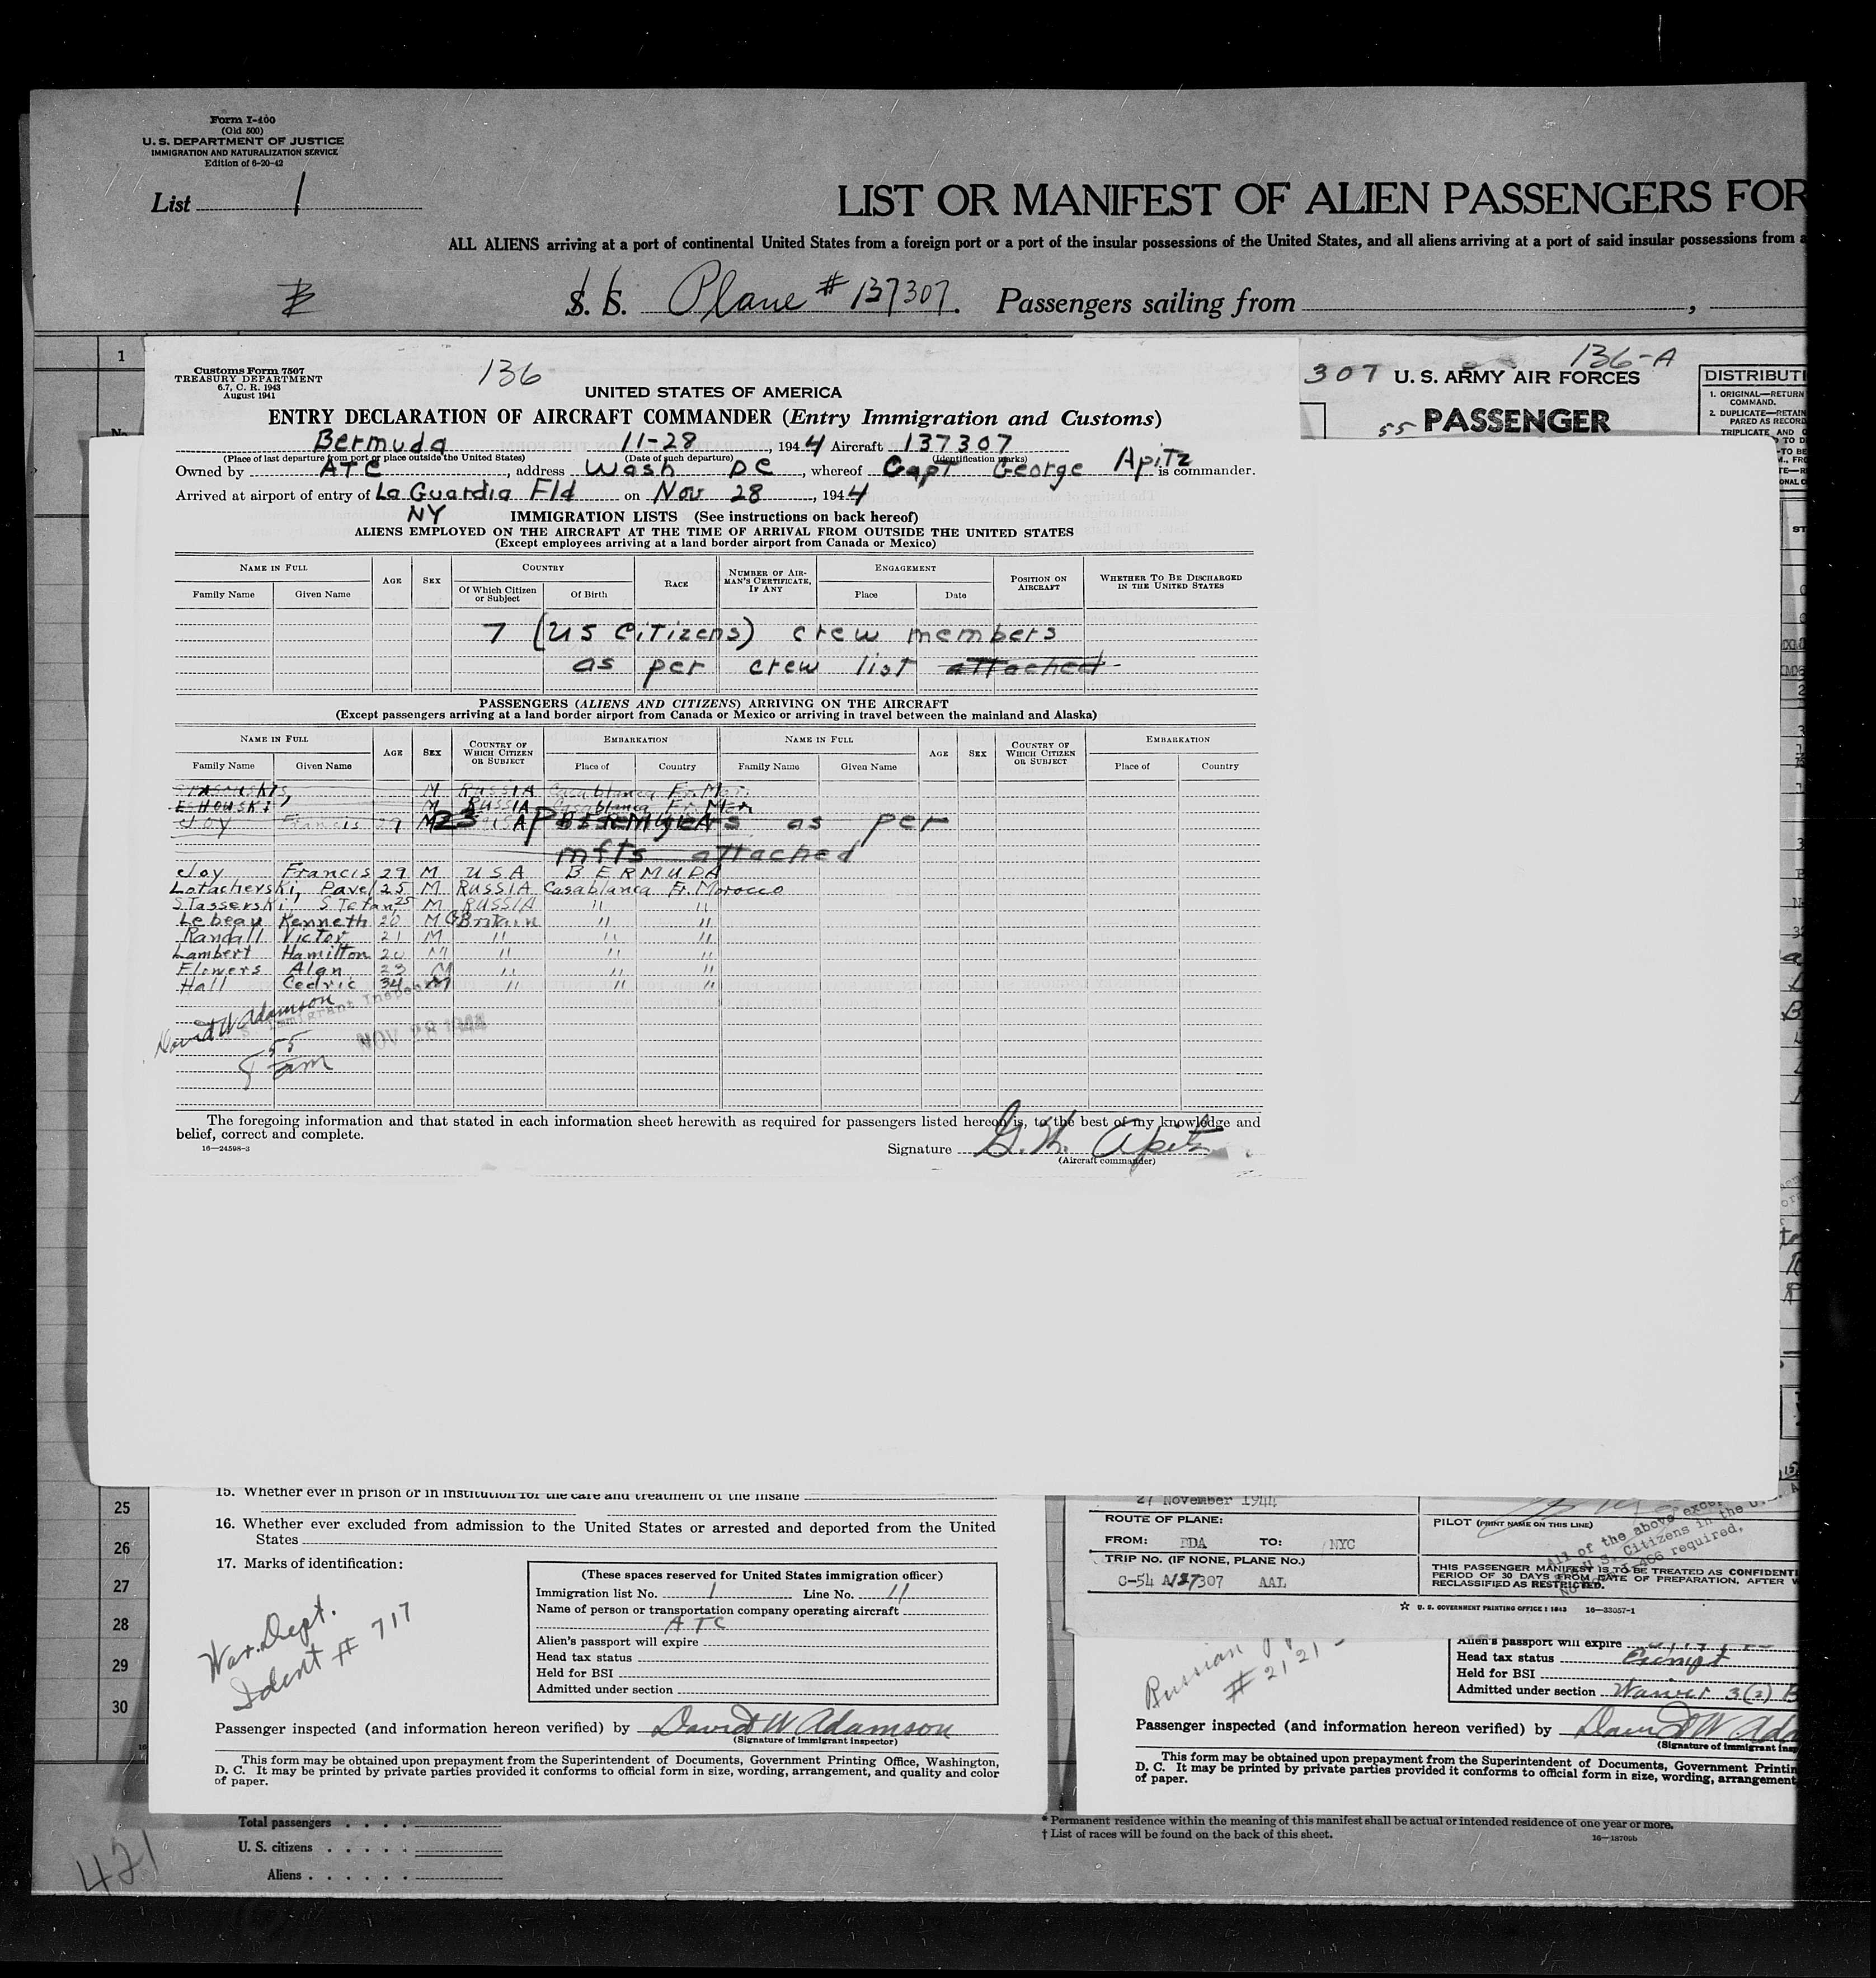 Form I-400
(Old 500)
U. S. DEPARTMENT OF JUSTICE
IMMIGRATION AND NATURALIZATION SERVICE
Edition of 6-20-42
List 1
LIST OR MANIFEST OF ALIEN PASSENGERS FOR
ALL ALIENS arriving at a port of continental United States from a foreign port or a port of the insular possessions of the United States, and all aliens arriving at a port of said insular possessions from a
S. S. Plane # 137307. Passengers sailing from ,
1
Customs Form 7507
TREASURY DEPARTMENT
6.7, C. R. 1943
August 1941
136
UNITED STATES OF AMERICA
ENTRY DECLARATION OF AIRCRAFT COMMANDER (Entry Immigration and Customs)
Bermuda 11-28, 1944 Aircraft 137307
(Place of last departure from port or place outside the United States) (Date of such departure) (Identification marks)
Owned by ATC, address Wash DC, whereof Capt George Apitz is commander.
Arrived at airport of entry of La Guardia Fld on Nov 28, 1944
NY IMMIGRATION LISTS (See instructions on back hereof)
ALIENS EMPLOYED ON THE AIRCRAFT AT THE TIME OF ARRIVAL FROM OUTSIDE THE UNITED STATES
(Except employees arriving at a land border airport from Canada or Mexico)
NAME IN FULL AGE SEX COUNTRY RACE NUMBER OF AIRMAN'S CERTIFICATE, IF ANY ENGAGEMENT POSITION ON AIRCRAFT WHETHER TO BE DISCHARGED IN THE UNITED STATES
Family Name Given Name Of Which Citizen or Subject Of Birth Place Date
7 (US Citizens) crew members
as per crew list attached
PASSENGERS (ALIENS AND CITIZENS) ARRIVING ON THE AIRCRAFT
(Except passengers arriving at a land border airport from Canada or Mexico or arriving in travel between the mainland and Alaska)
NAME IN FULL AGE SEX COUNTRY OF WHICH CITIZEN OR SUBJECT EMBARKATION NAME IN FULL AGE SEX COUNTRY OF WHICH CITIZEN OR SUBJECT EMBARKATION
Family Name Given Name Place of Country Family Name Given Name Place of Country
M RUSSIA Casablanca Fr. Mor.
M RUSSIA Casablanca Fr. Mor
Joy Francis 29 M 23 Passengers as per
mfts attached
Joy Francis 29 M USA BERMUDA
Lotachevski, Pavel 25 M RUSSIA Casablanca Fr. Morocco
STasserski, STefan 25 M RUSSIA " "
Lebeau Kenneth 20 M GBritain " "
Randall Victor 21 M " " "
Lambert Hamilton 20 M " " "
Flowers Alan 23 M " " "
Hall Cedric 34 M " " "
David W Adamson
Immigrant Inspector
NOV 28 1944
8 55 am
The foregoing information and that stated in each information sheet herewith as required for passengers listed hereon is, to the best of my knowledge and
belief, correct and complete.
16—24598-3
Signature G. H. Apitz
(Aircraft commander)
307 U. S. ARMY AIR FORCES
136-A
55 PASSENGER
DISTRIBUTI
1. ORIGINAL—RETURN
COMMAND.
2. DUPLICATE—RETAIN
PARED AS RECORD
25
26
27
28
29
30
15. Whether ever in prison or in institution for the care and treatment of the insane
16. Whether ever excluded from admission to the United States or arrested and deported from the United
States
17. Marks of identification:
War. Dept.
Ident # 717
(These spaces reserved for United States immigration officer)
Immigration list No. 1 Line No. 11
Name of person or transportation company operating aircraft
ATC
Alien's passport will expire
Head tax status
Held for BSI
Admitted under section
Passenger inspected (and information hereon verified) by David W Adamson
(Signature of immigrant inspector)
This form may be obtained upon prepayment from the Superintendent of Documents, Government Printing Office, Washington,
D. C. It may be printed by private parties provided it conforms to official form in size, wording, arrangement, and quality and color
of paper.
27 November 1944
ROUTE OF PLANE:
FROM: BDA TO: NYC
TRIP NO. (IF NONE, PLANE NO.)
C-54 A/37307 AAL
PILOT (PRINT NAME ON THIS LINE)
All of the above except
U.S. Citizens in the U.S. A
No I-466 required.
THIS PASSENGER MANIFEST IS TO BE TREATED AS CONFIDENTI
PERIOD OF 30 DAYS FROM DATE OF PREPARATION, AFTER W
RECLASSIFIED AS RESTRICTED.
☆ U. S. GOVERNMENT PRINTING OFFICE : 1943 16—33057-1
Russian
# 2121
Alien's passport will expire
Head tax status Exempt
Held for BSI
Admitted under section Waiver 3(2) B
Passenger inspected (and information hereon verified) by David W. Ada
(Signature of immigrant insp
This form may be obtained upon prepayment from the Superintendent of Documents, Government Printin
D. C. It may be printed by private parties provided it conforms to official form in size, wording, arrangement
of paper.
Total passengers
U. S. citizens
Aliens
421
* Permanent residence within the meaning of this manifest shall be actual or intended residence of one year or more.
† List of races will be found on the back of this sheet.
16—18709b